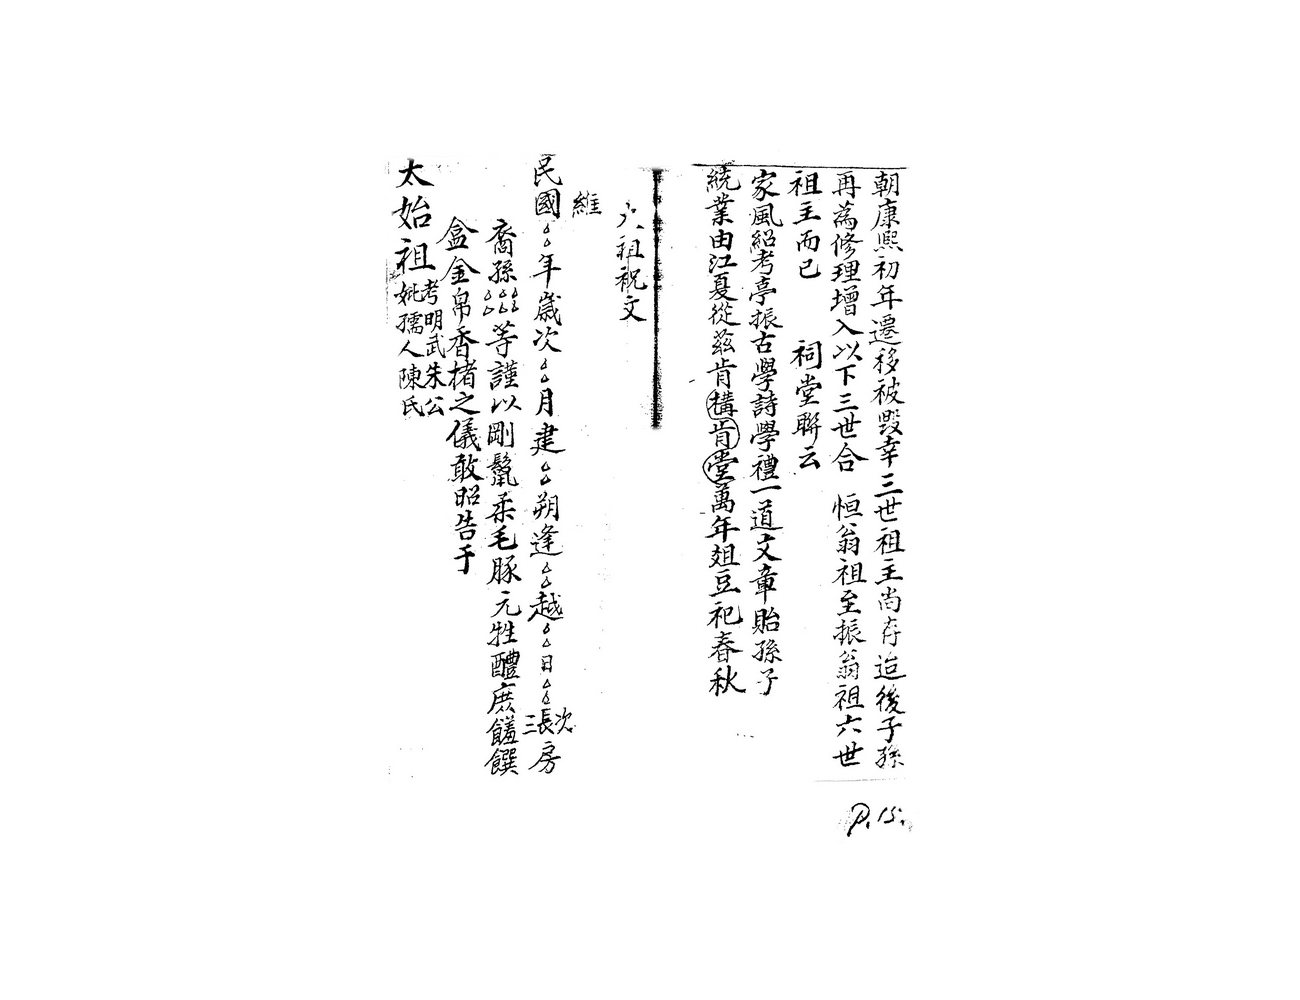 朝康熙初年遷移被毀幸三世祖主尚存迨後子孫
再為修理增入以下三世合 恒翁祖至振翁祖六世
祖主而已 祠堂聯云
家風紹考亭振古學詩學禮一道文章貽孫子
統業由江夏從茲肯構肯堂萬年俎豆祀春秋
祖祝文
維
民國△△年歲次△△月建△△朔逢△△越△△日△△次長三房
裔孫△△△△△△等謹以剛鬣柔毛豚元牲醴庶饈饌
盒金帛香楮之儀敢昭告于
太始祖考明武朱公
妣孺人陳氏
P.15.